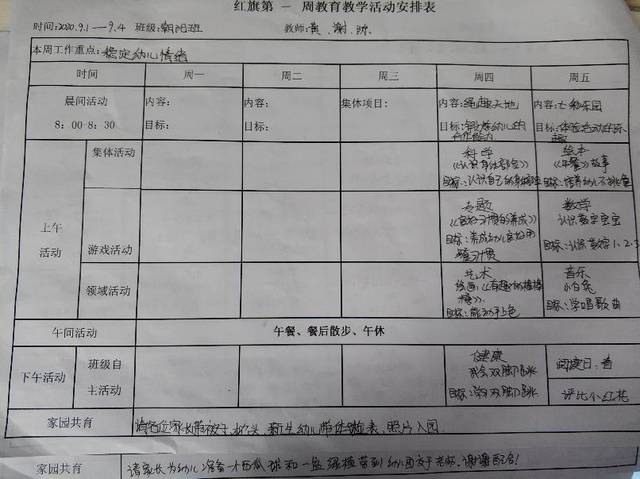 红旗第 一 周教育教学活动安排表
时间:2020.9.1—9.4 班级:朝阳班 教师:黄、谢、
本周工作重点: 稳定幼儿情绪
时间 周一 周二 周三 周四 周五
晨间活动 内容: 内容: 集体项目: 内容:绳趣天地 内容:七彩乐园
8: 00-8: 30 目标: 目标: 目标:锻炼幼儿的 目标:体验活动的乐
趣
集体活动 科学 绘本
《认识身体部位》 《午餐》故事
目标:认识自己的身体部位 目标:培养幼儿不挑食
上午
活动
专题 数学
认识数字宝宝
游戏活动 目标:养成幼儿良好用 目标:认识数字1、2、3
习惯
领域活动 艺术 音乐
绘画:《有趣的棒棒 小白兔
糖》 目标:学唱歌曲
目标:能动手上色
午间活动 午餐、餐后散步、午休
下午活动 班级自
主活动
健康 阅读日:
我会双脚跳 评比小红花
目标:学习双脚跳
家园共育 请各位家长带孩子 新生幼儿带体检表、照片入园.
家园共育 请家长为幼儿准备一个西瓜球和一盆绿植带到幼儿园交于老师。谢谢配合!